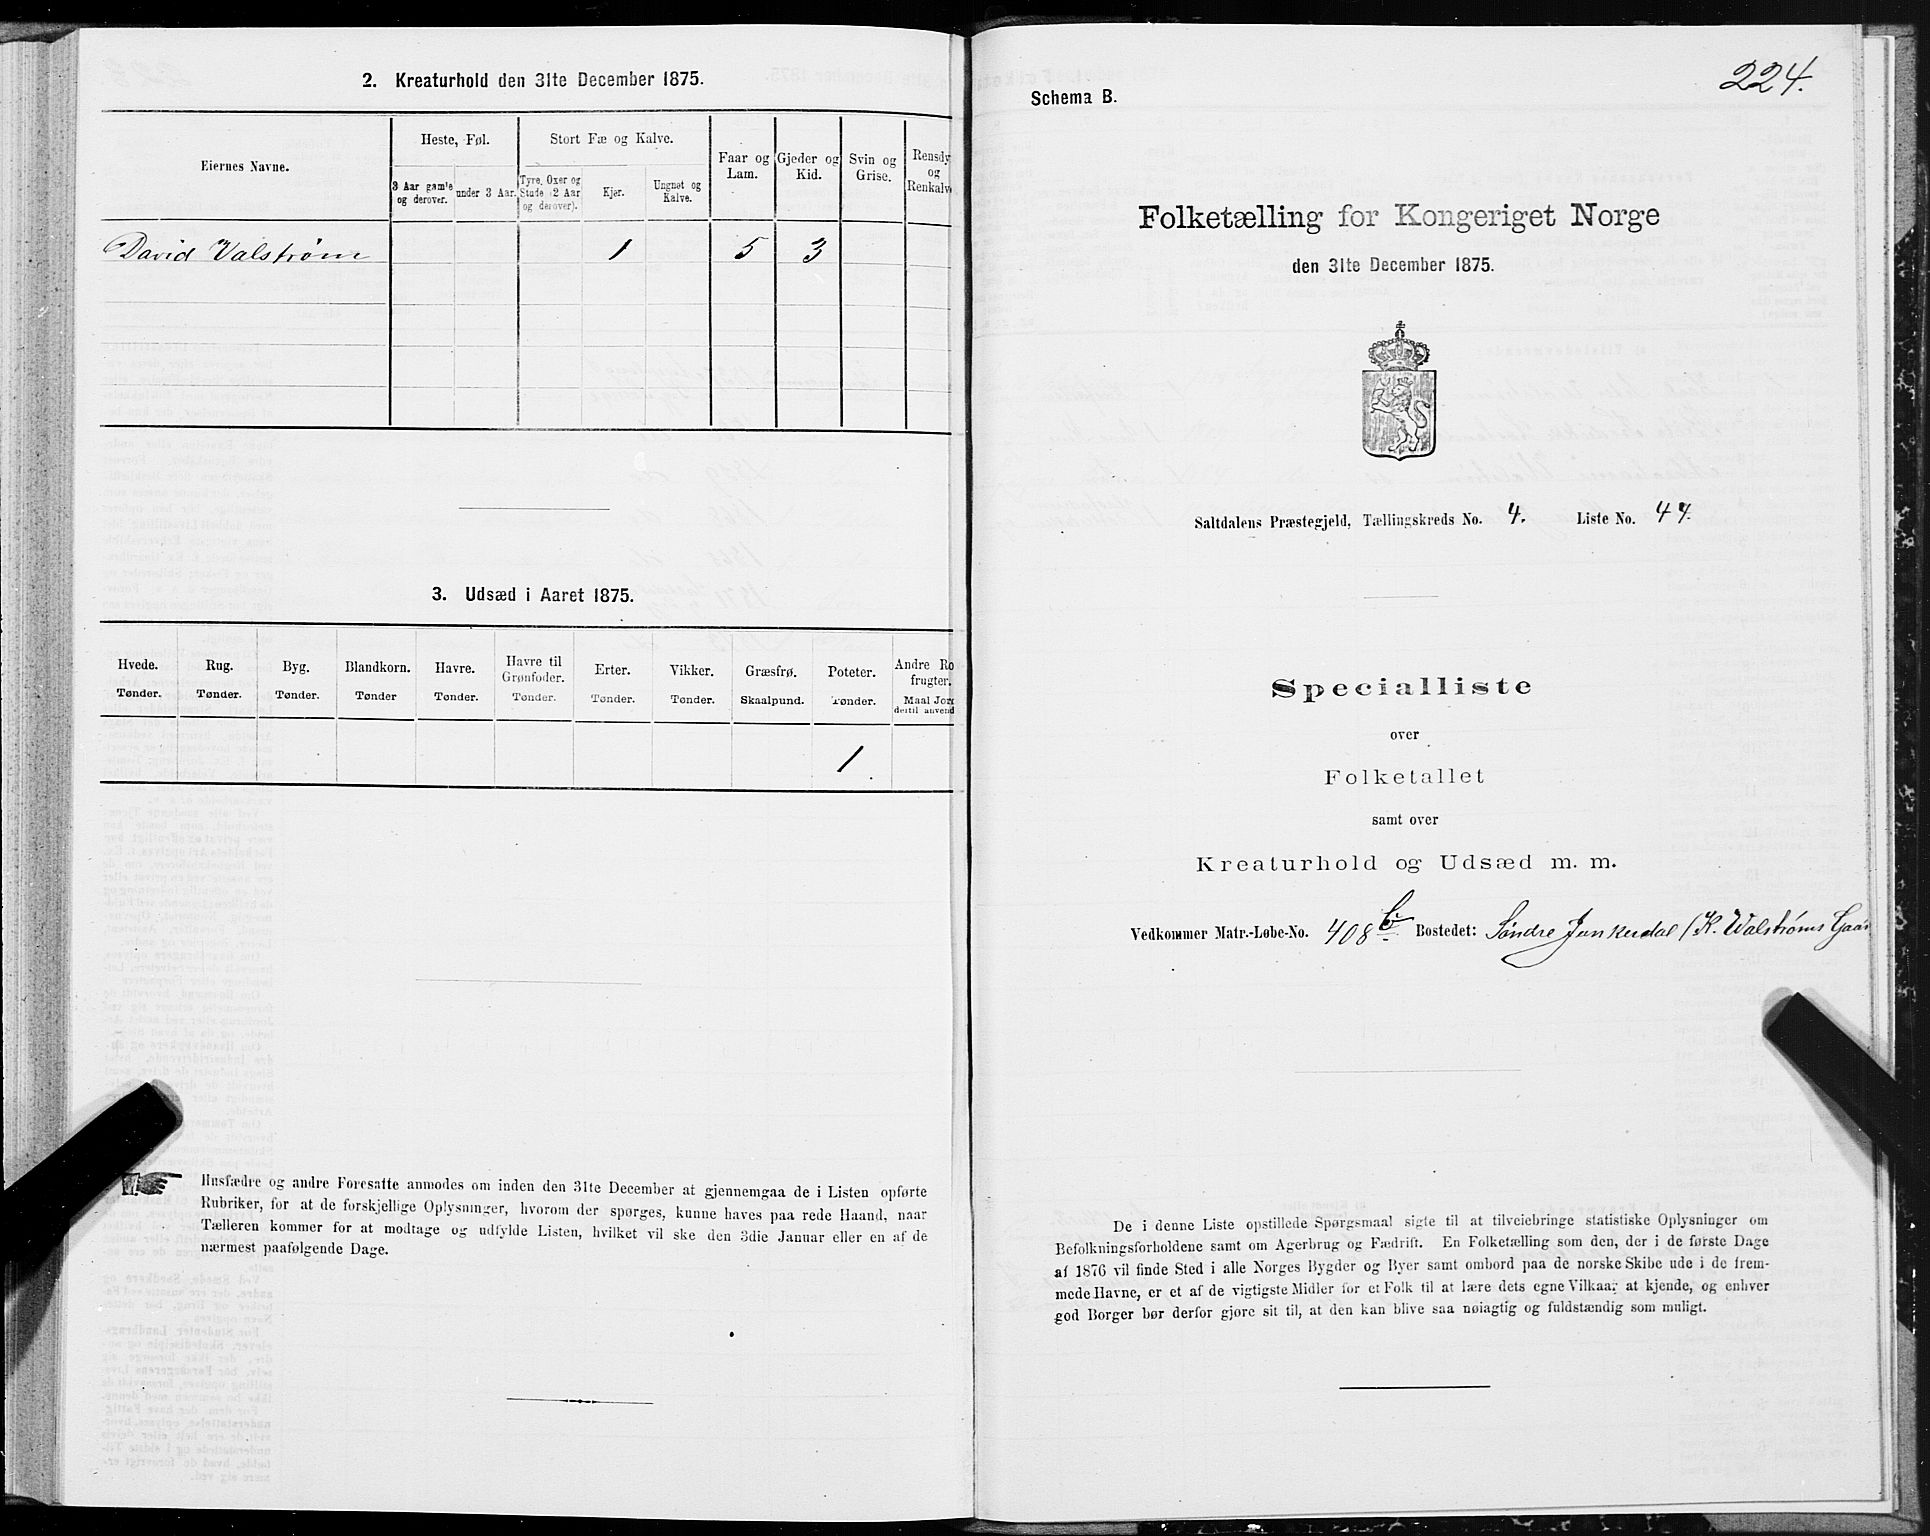 2. Kreaturhold den 31te December 1875.
Eiernes Navne.
Heste, Føl.
Stort Fæ og Kalve.
Faar og Lam.
Gjeder og Kid.
Svin og Grise.
Rensdy
og
Renkalv
3 Aar gamle og derover.
under 3 Aar.
Tyre, Oxer og Stude (2 Aar og derover).
Kjør.
Ungnøt og Kalve.
David Valstrøm 1 5 3
3. Udsæd i Aaret 1875.
Hvede. Rug. Byg. Blandkorn. Havre. Havre til Grønfoder. Erter. Vikker. Græsfrø. Poteter. Andre Ro
frugter.
Tønder. Tønder. Tønder. Tønder Tønder. Tønder. Tønder. Tønder. Skaalpund. Tønder. Maal Jord
dertil anvend
1
Husfædre og andre Foresatte anmodes om inden den 31te December at gjennemgaa de i Listen opførte
Rubriker, for at de forskjellige Oplysninger, hvorom der spørges, kunne haves paa rede Haand, naar
Tælleren kommer for at modtage og udfylde Listen, hvilket vil ske den 3die Januar eller en af de
nærmest paafølgende Dage.
224.
Schema B.
Folketælling for Kongeriget Norge
den 31te December 1875.
Saltdalens Præstegjeld, Tællingskreds No. 4. Liste No. 47.
Specialliste
over
Folketallet
samt over
Kreaturhold og Udsæd m. m.
Vedkommer Matr.-Løbe-No. 408 b Bostedet: Søndre Junkerdal (K. Valstrøms Gaar
De i denne Liste opstillede Spørgsmaal sigte til at tilveiebringe statistiske Oplysninger om
Befolkningsforholdene samt om Agerbrug og Fædrift. En Folketælling som den, der i de første Dage
af 1876 vil finde Sted i alle Norges Bygder og Byer samt ombord paa de norske Skibe ude i de frem-
mede Havne, er et af de vigtigste Midler for et Folk til at lære dets egne Vilkaar at kjende, og enhver
god Borger bør derfor gjøre sit til, at den kan blive saa nøiagtig og fuldstændig som muligt.